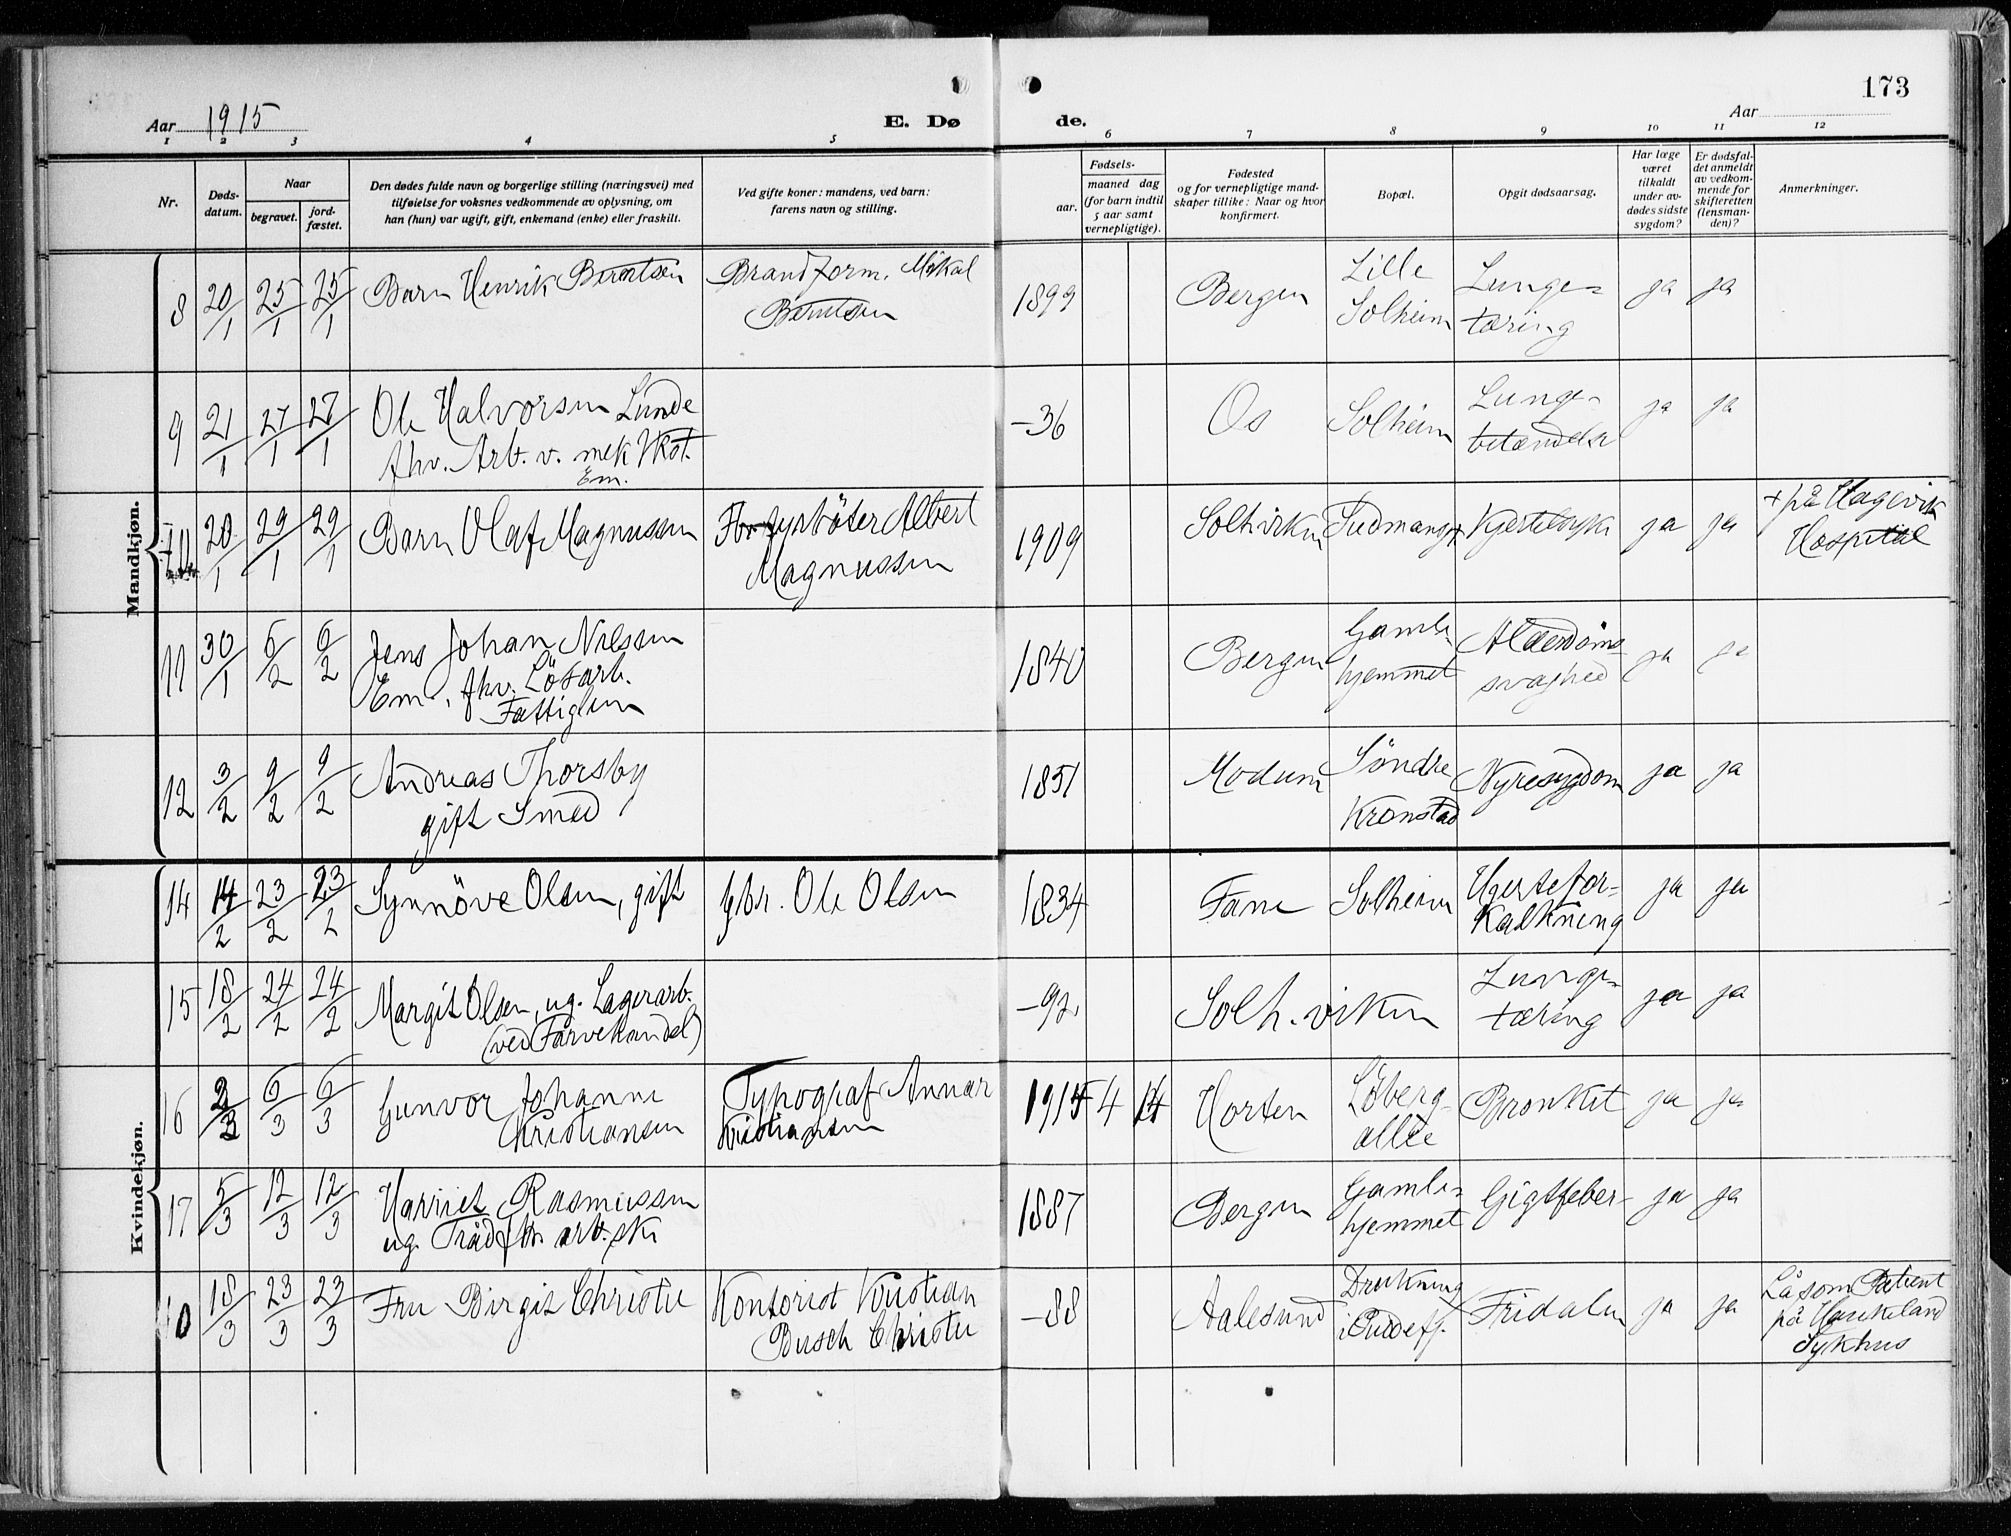 173
Aar 1915
E. Dø
de.
Aar
1 2 3 4 5 6 7 8 9 10 11 12
Nr.
Døds-
datum.
Naar
begravet.
jord-
fæstet.
Den dødes fulde navn og borgerlige stilling (næringsvei) med
tilføielse for voksnes vedkommende av oplysning, om
han (hun) var ugift, gift, enkemand (enke) eller fraskilt.
Ved gifte koner: mandens, ved barn:
farens navn og stilling.
Fødsels-
aar.
maaned dag
(for barn indtil
5 aar samt
vernepligtige).
Fødested
og for vernepligtige mand-
skaper tillike: Naar og hvor
konfirmert.
Bopæl.
Opgit dødsaarsag.
Har læge
været
tilkaldt
under av-
dødes sidste
sygdom?
Er dødsfal-
det anmeldt
av vedkom-
mende for
skifteretten
(lensman-
den)?
Anmerkninger.
Mandkjøn.
8 20/1 25/1 25/1 Barn Henrik Berntsen Brandform. Mikal
Berntsen
1899 Bergen Lille
Solheim
Lunge-
tæring
ja ja
9 21/1 27/1 27/1 Ole Halvorsen Lunde
fhv. Arb. v. mek Vkst.
Em.
-36 Os Solheim Lunge-
betændelse
ja ja
10 20/1 29/1 29/1 Barn Olaf Magnussen fyrbøter Albert
Magnussen
1909 Solh.viken Kjertelsyk ja ja + på Hagevik
Hospital
11 30/1 6/2 6/2 Jens Johan Nilssen
Em., fhv. Løsarb.
Fattiglem
1840 Bergen Gamle-
hjemmet
Alderdoms-
svaghed
ja ja
12 3/2 9/2 9/2 Andreas Thorsby
gift Smed
1851 Modum Söndre
Kronstad
Nyresygdom ja ja
Kvindekjøn.
14 14/2 23/2 23/2 Synnöve Olsen, gift Gbr. Ole Olsen
1834 Fane Solheim Hjertefor-
kalkning
ja ja
15 18/2 24/2 24/2 Margit Olsen, ug. Lagerarb.
(ved Farvehandel)
-92 Solh.viken Lunge-
tæring
ja ja
16 2/3 6/3 6/3 Gunvor Johanne
Kristiansen
Typograf Annar
Kristiansen
1914 4 14 Horten Löberg
allee
Bronkit ja ja
17 5/3 12/3 12/3 Harriet Rasmussen
ug. Trådfbr. arb.ske
1887 Bergen Gamle-
hjemmet
Gigtfeber ja ja
18/3 23/3 23/3 Fru Birgit Christie Kontorist Kristian
Busch Christie
-88 Aalesund Drukning
i Puddefj.
Fridalen ja ja Lå som Patient
på Haukeland
Sykhus